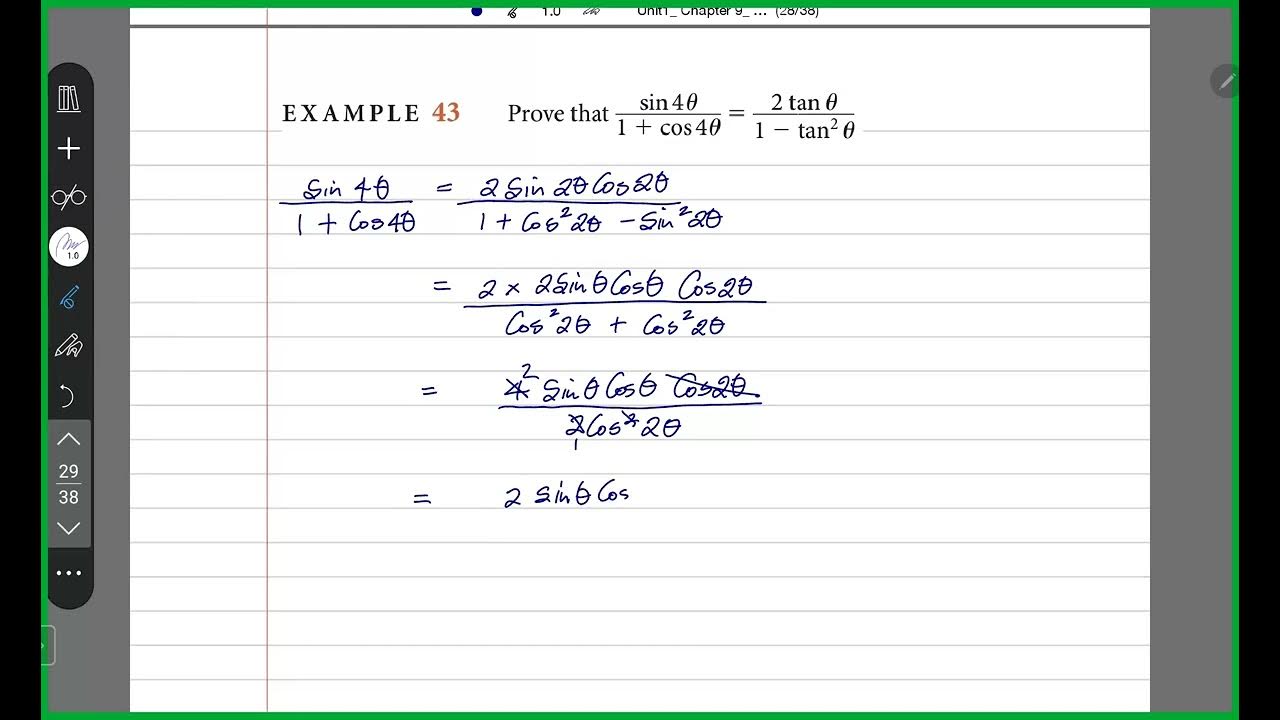 1.0 Unit1_ Chapter 9_ ... (28/38)
EXAMPLE 43 Prove that sin 4θ / 1 + cos 4θ = 2 tan θ / 1 − tan² θ
Sin 4θ / 1 + Cos4θ = 2 Sin 2θ Cos 2θ / 1 + Cos² 2θ − Sin² 2θ
= 2 × 2Sin θ Cosθ Cos2θ / Cos² 2θ + Cos² 2θ
= 4 2 Sin θ Cos θ Cos2θ / 2 1 Cos² 2θ
= 2 Sin θ Cos
1.0
29
38